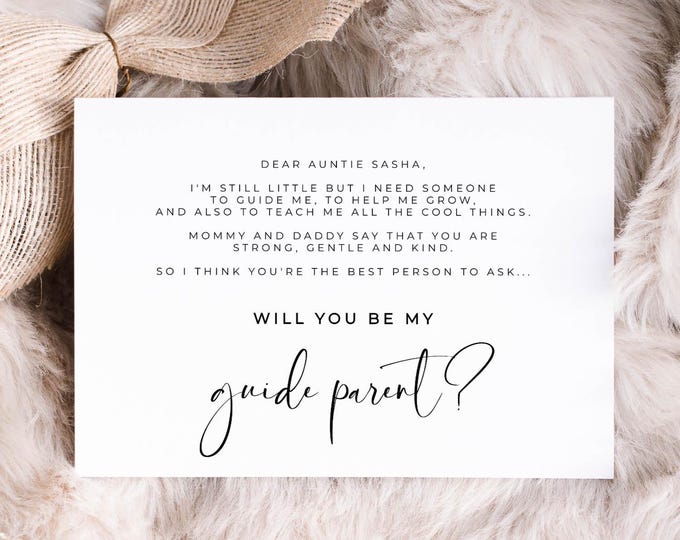 DEAR AUNTIE SASHA,
I'M STILL LITTLE BUT I NEED SOMEONE
TO GUIDE ME, TO HELP ME GROW,
AND ALSO TO TEACH ME ALL THE COOL THINGS.
MOMMY AND DADDY SAY THAT YOU ARE
STRONG, GENTLE AND KIND.
SO I THINK YOU'RE THE BEST PERSON TO ASK...
WILL YOU BE MY
guide parent?